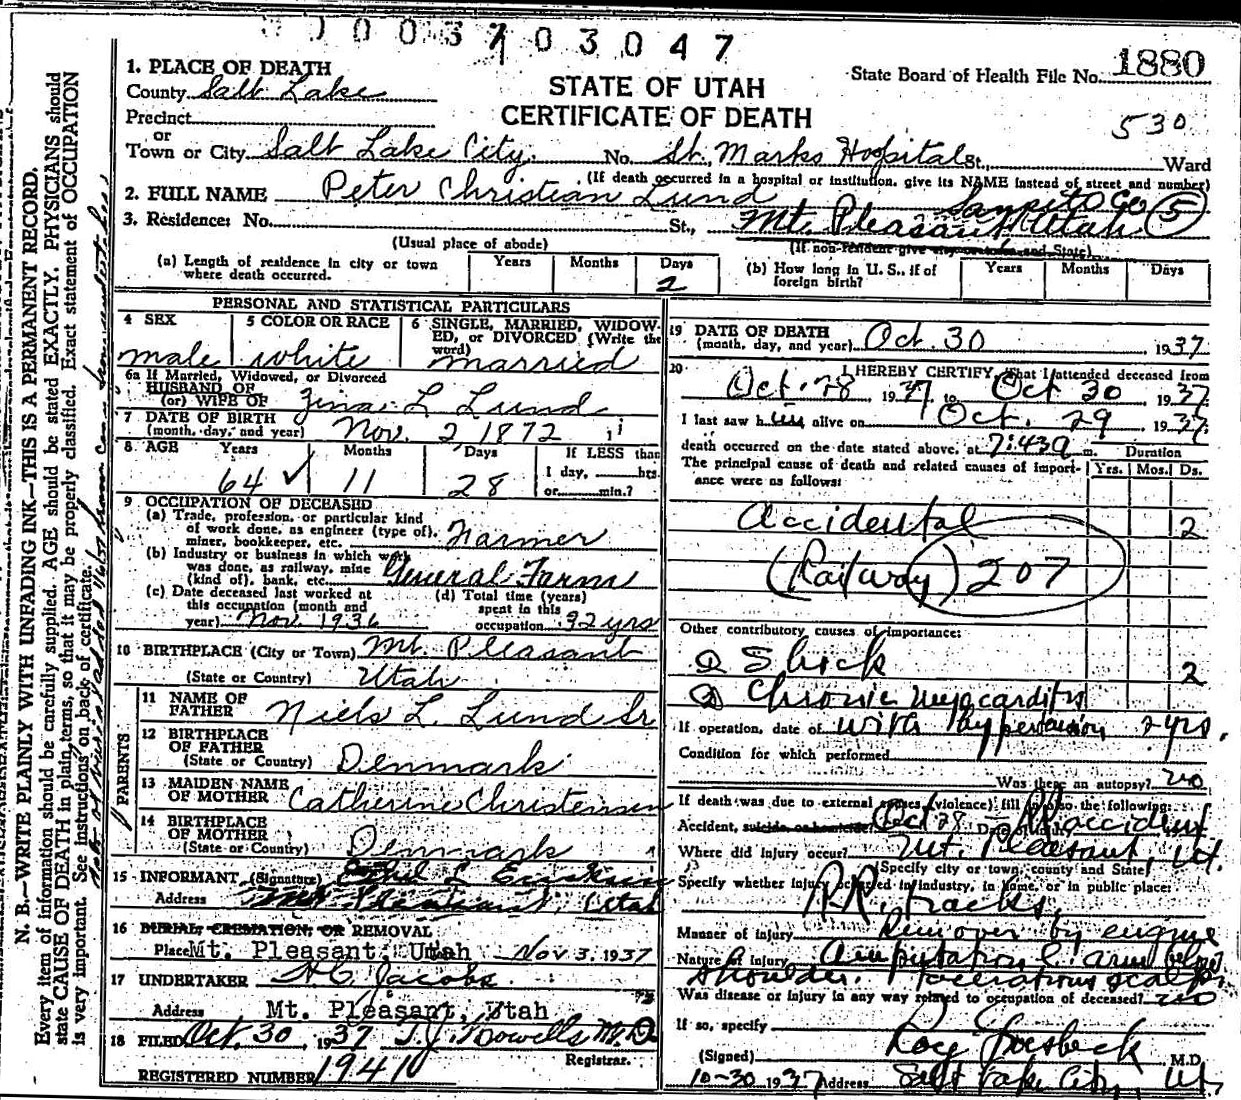 0003703047
1. PLACE OF DEATH
STATE OF UTAH
CERTIFICATE OF DEATH
State Board of Health File No. 1880
530
County Salt Lake
Precinct
or
Town or City Salt Lake City. No. St. Marks Hospital St., Ward
(If death occurred in a hospital or institution, give its NAME instead of street and number)
2. FULL NAME Peter Christian Lund
Sanpete Co 5
3. Residence: No. St., Mt. Pleasant Utah.
(Usual place of abode) (If non-resident give city or town and State)
(a) Length of residence in city or town where death occurred. Years Months Days 2
(b) How long in U. S., if of foreign birth? Years Months Days
PERSONAL AND STATISTICAL PARTICULARS
4 SEX male
5 COLOR OR RACE white
6 SINGLE, MARRIED, WIDOWED, or DIVORCED (Write the word) married
6a If Married, Widowed, or Divorced
HUSBAND OF
(or) WIFE OF Zina L Lund
7 DATE OF BIRTH
(month, day, and year) Nov. 2 1872
8 AGE Years Months Days If LESS than
1 day, hrs.
or min.?
64 ✓ 11 28
9 OCCUPATION OF DECEASED
(a) Trade, profession, or particular kind
of work done, as engineer (type of),
miner, bookkeeper, etc. Farmer
(b) Industry or business in which work
was done, as railway, mine
(kind of), bank, etc. General Farm
(c) Date deceased last worked at
this occupation (month and
year) Nov. 1936
(d) Total time (years)
spent in this
occupation 32 yrs
10 BIRTHPLACE (City or Town) Mt. Pleasant
(State or Country) Utah
PARENTS
11 NAME OF
FATHER Niels L. Lund Sr
12 BIRTHPLACE
OF FATHER
(State or Country) Denmark
13 MAIDEN NAME
OF MOTHER Catherine Christensen
14 BIRTHPLACE
OF MOTHER
(State or Country) Denmark
15 INFORMANT (Signature)
Address Mt. Pleasant, Utah
16 BURIAL, CREMATION, OR REMOVAL
Place Mt. Pleasant, Utah Nov 3. 1937
17 UNDERTAKER H C Jacobs
Address Mt. Pleasant, Utah
18 FILED Oct. 30, 1937 T. J. Howells M.D.
Registrar.
REGISTERED NUMBER 1941
19 DATE OF DEATH
(month, day, and year) Oct. 30 1937
20 I HEREBY CERTIFY, That I attended deceased from
Oct. 28 1937, to Oct 30 1937
I last saw him alive on Oct. 29 1937
death occurred on the date stated above, at 7:43a m. Duration
The principal cause of death and related causes of importance were as follows: Yrs. Mos. Ds.
Accidental 2
(Railway) 207
Other contributory causes of importance:
Shock 2
Chronic myocarditis
If operation, date of with hypertension 2 yrs.
Condition for which performed
Was there an autopsy? no
If death was due to external causes (violence) fill in also the following:
Accident, suicide, or homicide Oct 28 Date of RR accident
Where did injury occur? Mt. Pleasant, Ut.
(Specify city or town, county and State)
Specify whether injury occurred in industry, in home, or in public place:
RR. tracks.
Manner of injury Run over by engine
Nature of injury Amputation L arm below
shoulder. Lacerations scalp
Was disease or injury in any way related to occupation of deceased? no
If so, specify
(Signed) Roy Groesbeck M.D.
10-30 1937 Address Salt Lake City, Ut.
N. B.—WRITE PLAINLY WITH UNFADING INK—THIS IS A PERMANENT RECORD.
Every item of information should be carefully supplied. AGE should be stated EXACTLY. PHYSICIANS should
state CAUSE OF DEATH in plain terms, so that it may be properly classified. Exact statement of OCCUPATION
is very important. See instructions on back of certificate.